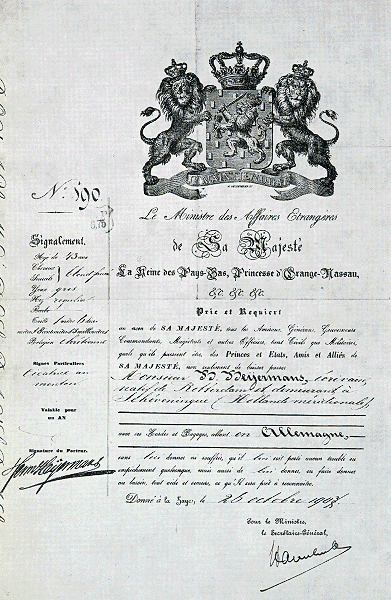 JE MAINTIENDRAI
N.° 590
5.75
Le Ministre des Affaires Etrangères
de Sa Majesté
La Reine des Pays-Bas, Princesse d'Orange-Nassau,
&c. &c. &c.
Prie et Requiert
au nom de SA MAJESTÉ, tous les Amiraux, Généraux, Gouverneurs
Commandants, Magistrats et autres Officiers, tant Civils que Militaires,
des Princes et Etats, Amis et Alliés de
SA MAJESTÉ, non seulement de laisser passer
Monsieur H. Heijermans, écrivain,
natif de Rotterdam et demeurant à
Scheveningue (Hollande méridionale)
avec ses Hardes et Bagages, allant en Allemagne,
sans donner ou souffrir, qu'il soit porté aucun trouble ou
empêchement quelconque, mais aussi de donner, ou faire donner
au besoin, tout aide et secours, ce qu'il sera prêt à reconnaître.
Donné à la Haye, le 26 octobre 190
Pour le Ministre,
le Secrétaire-Général,
Signalement.
Age de 43 ans
Cheveux
Sourcils
Yeux gris
Nez
Barbe
Signes Particuliers.
Cicatrice au
menton
Valable pour
un AN
Signature du Porteur.
Herm Heijermans